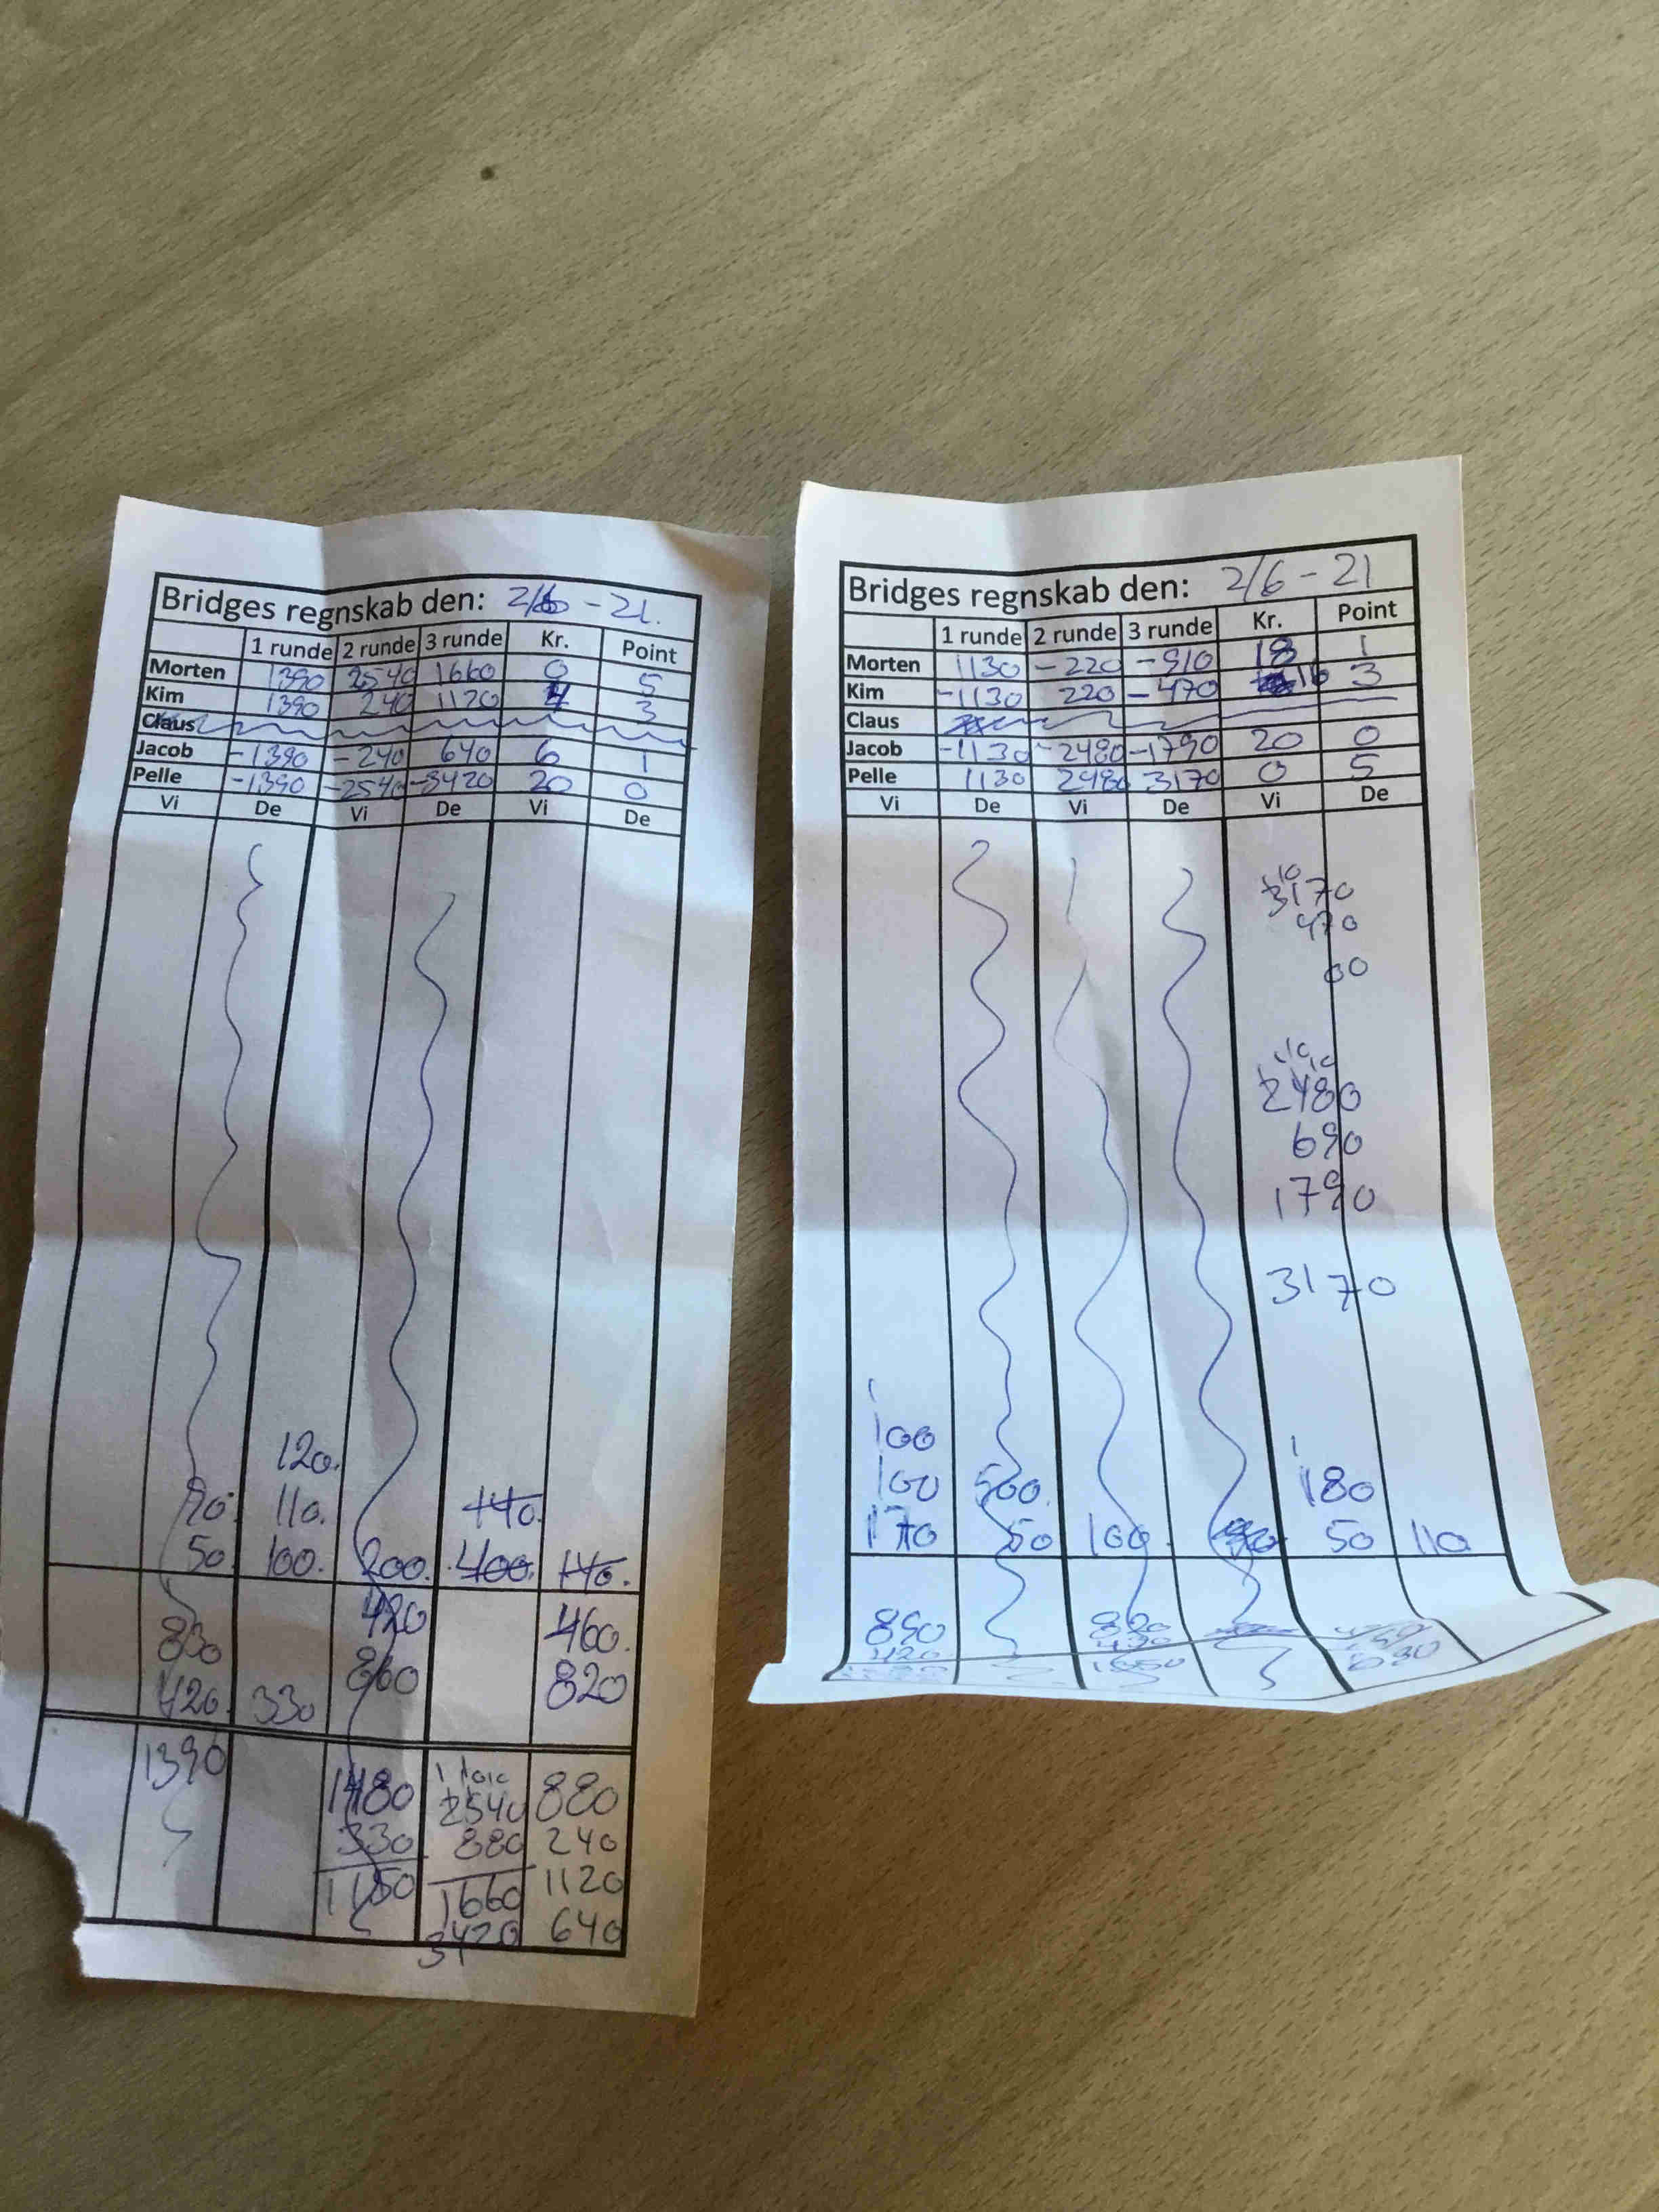 Bridges regnskab den: 2/6 - 21.
1 runde 2 runde 3 runde Kr. Point
Morten 1390 2540 1660 0 5
Kim 1390 240 1120 4 3
Claus
Jacob -1390 -240 640 6 1
Pelle -1390 -2540 -3420 20 0
Vi De Vi De Vi De
120.
90. 110. 140.
50. 100. 200. 400. 140.
420 460.
830 860 820
420. 330
1390 1480 2540 880
330 880 240
1150 1660 1120
3420 640
Bridges regnskab den: 2/6 - 21
1 runde 2 runde 3 runde Kr. Point
Morten 1130 -220 -910 18 1
Kim -1130 220 -470 16 3
Claus
Jacob -1130 -2480 -1790 20 0
Pelle 1130 2480 3170 0 5
Vi De Vi De Vi De
10
3170
470
00
10 10
2480
690
1790
3170
100
100 500. 180
170 50 100. 50 110
890 820
420 430